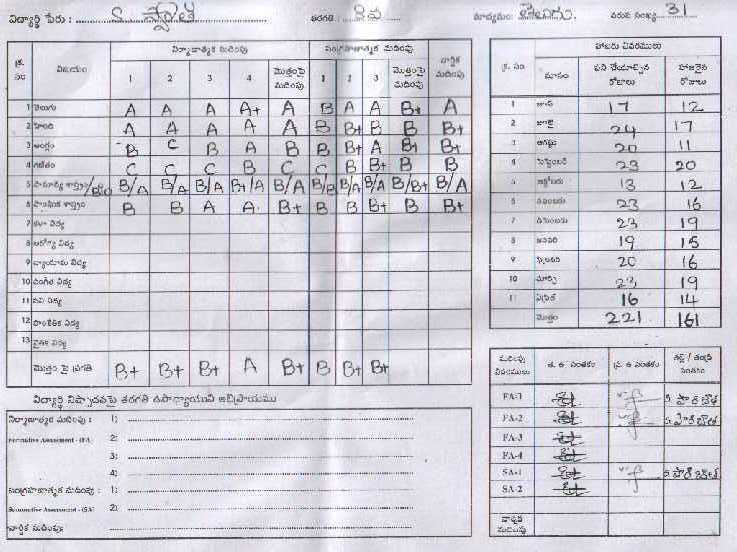 విద్యార్థి పేరు : S. స్వాతి తరగతి : 8వ మాధ్యమం: తెలుగు. వరుస సంఖ్య 31
క్ర. సం విషయం నిర్మాణాత్మక మదింపు సంగ్రహణాత్మక మదింపు వార్షిక మదింపు
1 2 3 4 మొత్తంపై మదింపు 1 2 3 మొత్తంపై మదింపు
1 తెలుగు A A A A+ A B A A B+ A
2 హిందీ A A A A A B B+ B B B+
3 ఆంగ్లం B C B A B B B+ A B+ B+
4 గణితం C C C B C C B B+ B B
5 సామాన్య శాస్త్రం B/A B/A B/A B+/A B/A B/B B/A B/A B/B+ B/A
6 సాంఘిక శాస్త్రం B B A A B+ B B B+ B B+
7 కళా విద్య
8 ఆరోగ్య విద్య
9 వ్యాయామ విద్య
10 సంగీత విద్య
11 పని విద్య
12 సాంకేతిక విద్య
13 నైతిక విద్య
మొత్తం పై ప్రగతి B+ B+ B+ A B+ B B+ B+
హాజరు వివరములు
క్ర. సం మాసం పని చేయాల్సిన రోజులు హాజరైన రోజులు
1 జూన్ 17 12
2 జూలై 24 17
3 ఆగస్టు 20 11
4 సెప్టెంబర్ 23 20
5 అక్టోబరు 13 12
6 నవంబరు 23 16
7 డిసెంబరు 23 19
8 జనవరి 19 15
9 ఫిబ్రవరి 20 16
10 మార్చి 23 19
11 ఏప్రిల్ 16 14
మొత్తం 221 161
మదింపు వివరములు త. ఉ సంతకం ప్ర. ఉ సంతకం తల్లి / తండ్రి సంతకం
FA-1
FA-2
FA-3
FA-4
SA-1
SA-2
వార్షిక మదింపు
విద్యార్థి నిష్పాదనపై తరగతి ఉపాధ్యాయుని అభిప్రాయము
నిర్మాణాత్మక మదింపు : 1)
Formative Assessment - (FA) 2)
3)
4)
సంగ్రహణాత్మక మదింపు : 1)
Summative Assessment - (SA) 2)
వార్షిక మదింపు: